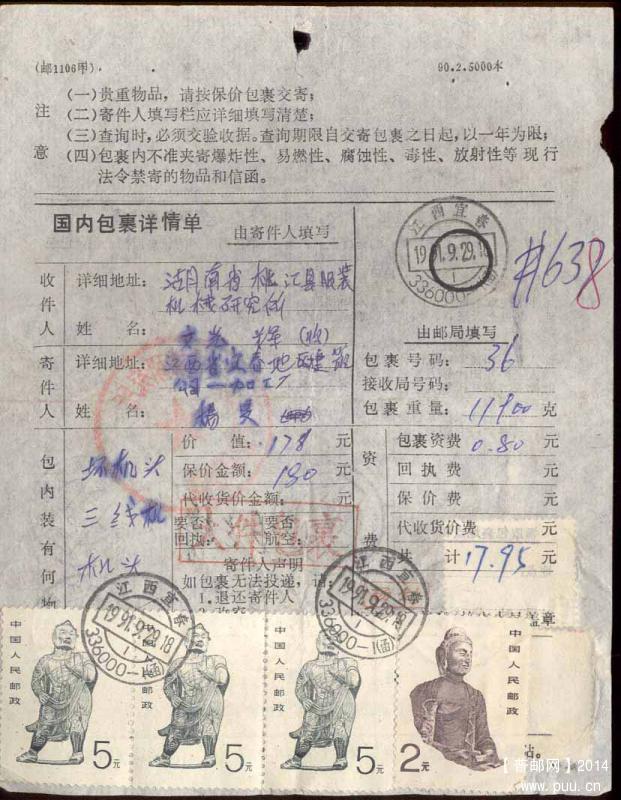 (邮1106甲)
90.2.5000本
注意
(一)贵重物品，请按保价包裹交寄；
(二)寄件人填写栏应详细填写清楚；
(三)查询时，必须交验收据。查询期限自交寄包裹之日起，以一年为限；
(四)包裹内不准夹寄爆炸性、易燃性、腐蚀性、毒性、放射性等现行
法令禁寄的物品和信函。
国内包裹详情单
由寄件人填写
江西宜春
1991.9.29.18
336000
#638
收件人
详细地址：湖南省桃江县服装
机械研究所
姓名：文 (收)
寄件人
详细地址：江西省宜春地区
加工厂
姓名：杨
由邮局填写
包裹号码：36
接收局号码：
包裹重量：11900克
包内装有何物
坏机头
三线机
机头
价值：178元
保价金额：190元
代收货价金额：元
要否回执：
要否航空：
大件包裹
寄件人声明
如包裹无法投递，请：
1.退还寄件人
2.改寄
资费
包裹资费 0.80元
回执费 元
保价费 元
代收货价费 元
共计 17.95元
盖章
江西宜春
1991.9.29.18
336000
江西宜春
1991.9.29.18
336000
中国人民邮政
5元
中国人民邮政
5元
中国人民邮政
5元
中国人民邮政
2元
【普邮网】2014
www.puu.cn